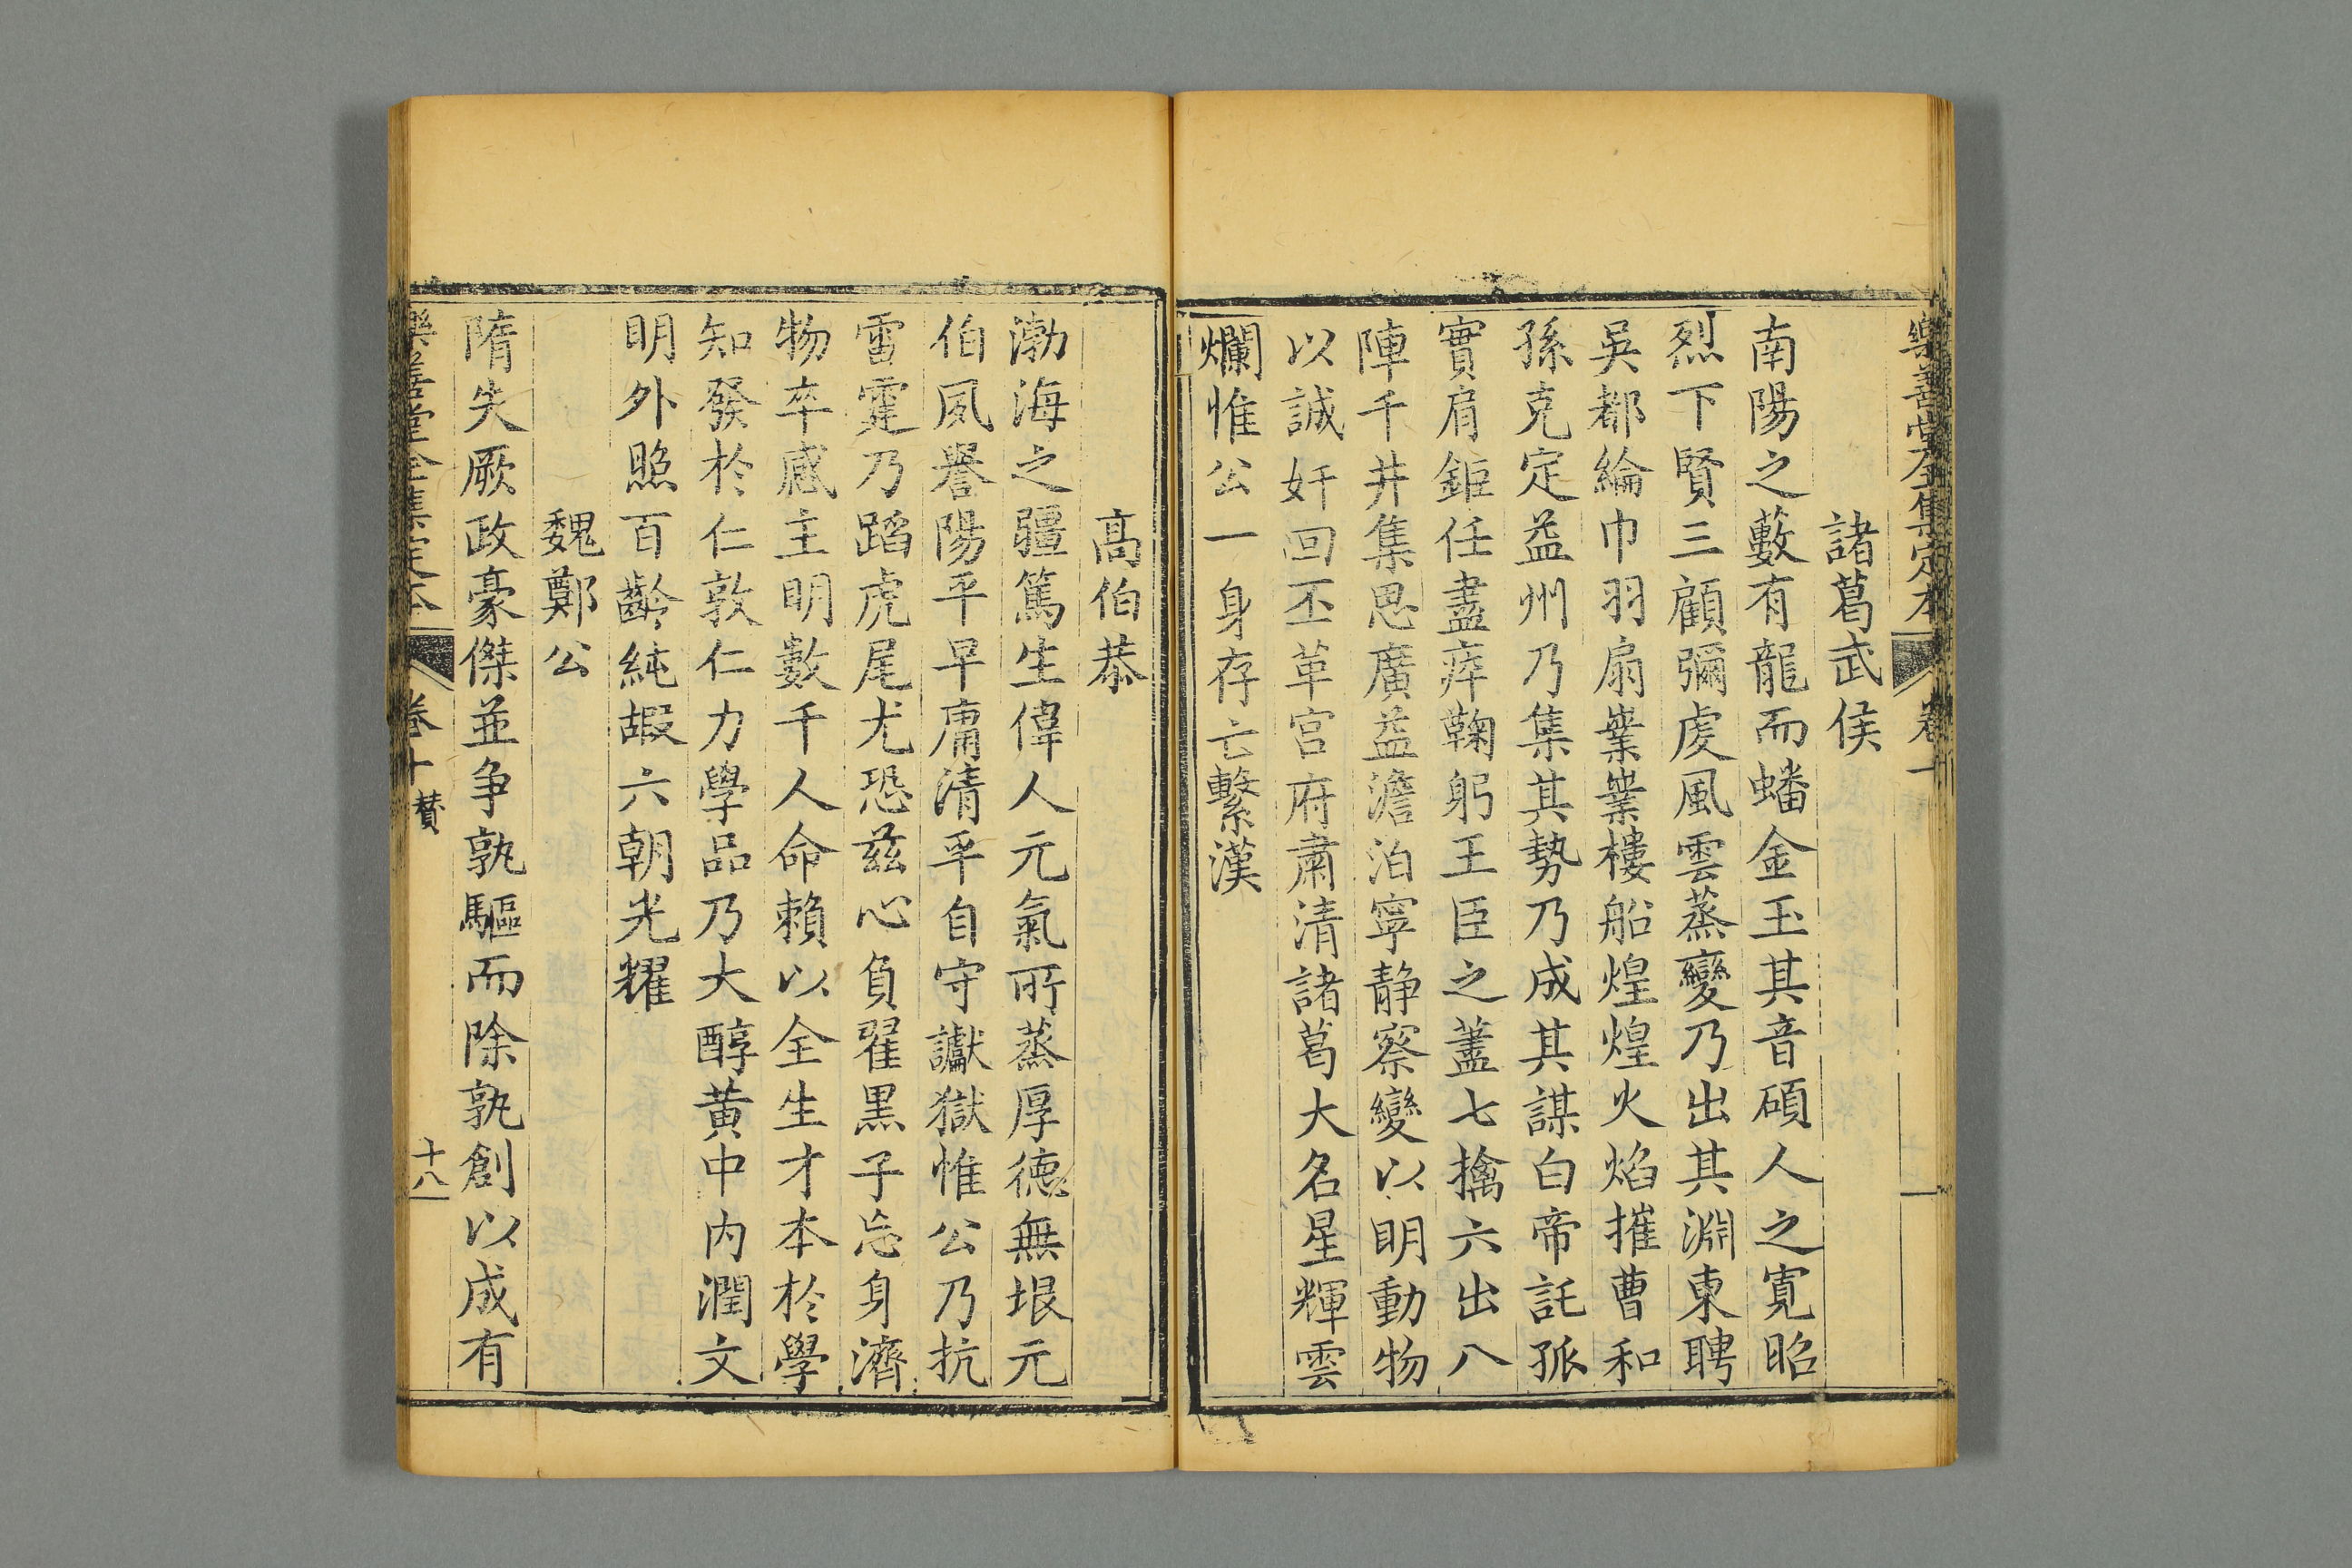 樂善堂全集定本 卷十
諸葛武侯
南陽之藪有龍而蟠金玉其音碩人之寬昭
烈下賢三顧彌虔風雲蒸變乃出其淵東聘
吳都綸巾羽扇業業樓船煌煌火焰摧曹和
孫克定益州乃集其勢乃成其謀白帝託孤
實肩鉅任盡瘁鞠躬王臣之藎七擒六出八
陣千井集思廣益澹泊寧静察變以明動物
以誠奸回丕革宫府肅清諸葛大名星輝雲
爛惟公一身存亡繫漢
高伯恭
渤海之疆篤生偉人元氣所蒸厚德無垠元
伯夙譽陽平早庸清平自守讞獄惟公乃抗
雷霆乃蹈虎尾尤恐兹心負翟黑子忘身濟
物卒感主明數千人命賴以全生才本於學
知發於仁敦仁力學品乃大醇黄中内潤文
明外照百齡純嘏六朝光耀
魏鄭公
隋失厥政豪傑並争孰驅而除孰創以成有
樂善堂全集定本 卷十 贊 十八